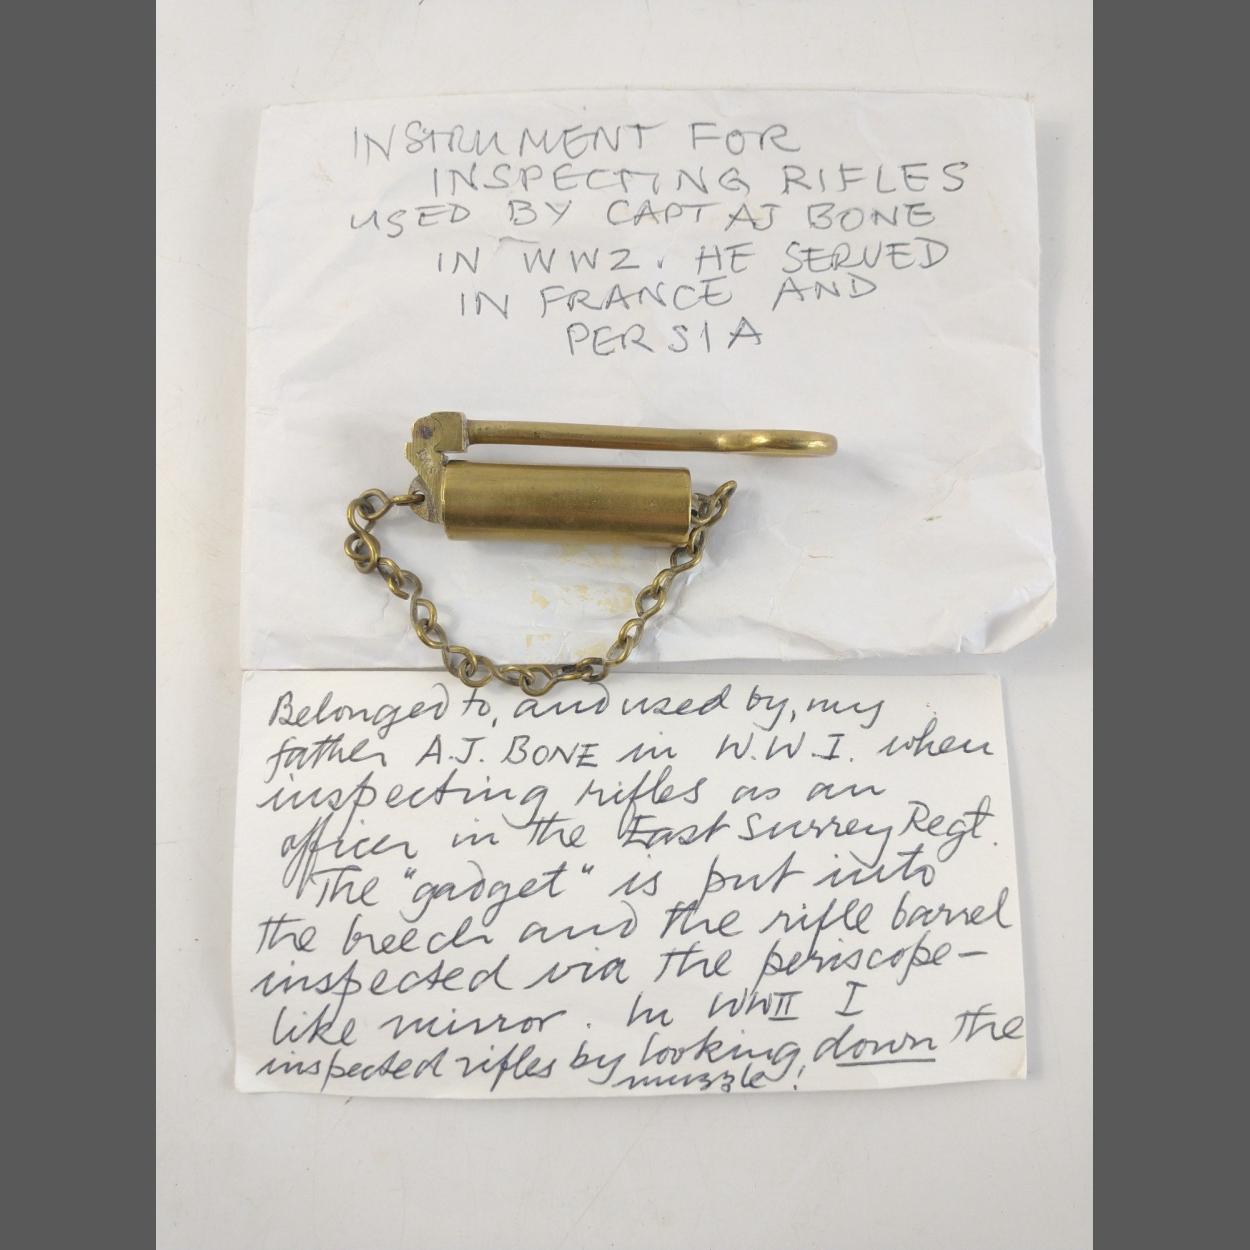 INSTRUMENT FOR
INSPECTING RIFLES
USED BY CAPT AJ BONE
IN WW2. HE SERVED
IN FRANCE AND
PERSIA
Belonged to, and used by, my
father A.J. BONE in W.W.I. when
inspecting rifles as an
officer in the East Surrey Regt.
The "gadget" is put into
the breech and the rifle barrel
inspected via the periscope-
like mirror. In WWII I
inspected rifles by looking down the
muzzle!